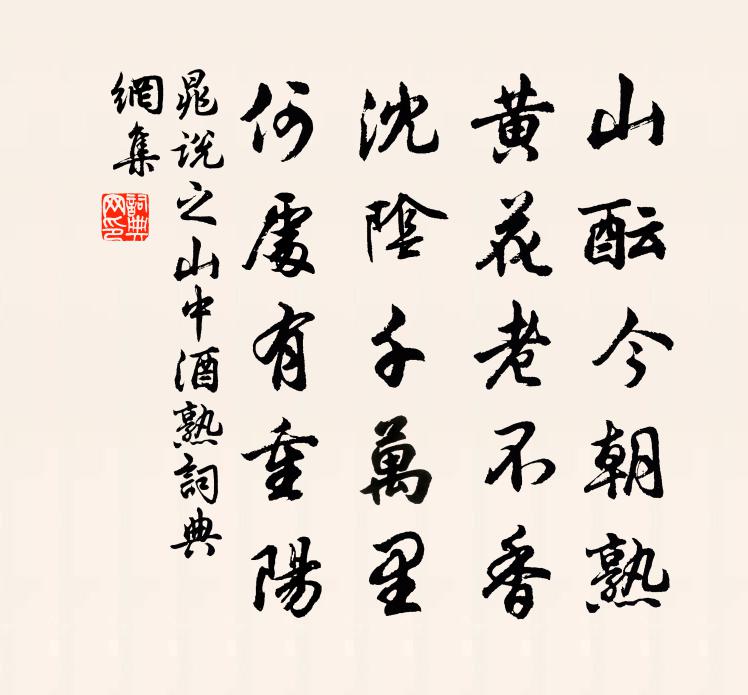 山酝今朝熟
黄花老不香
沈陰千萬里
何處有重陽
晁说之山中酒熟詞典
網集
詞典
网印